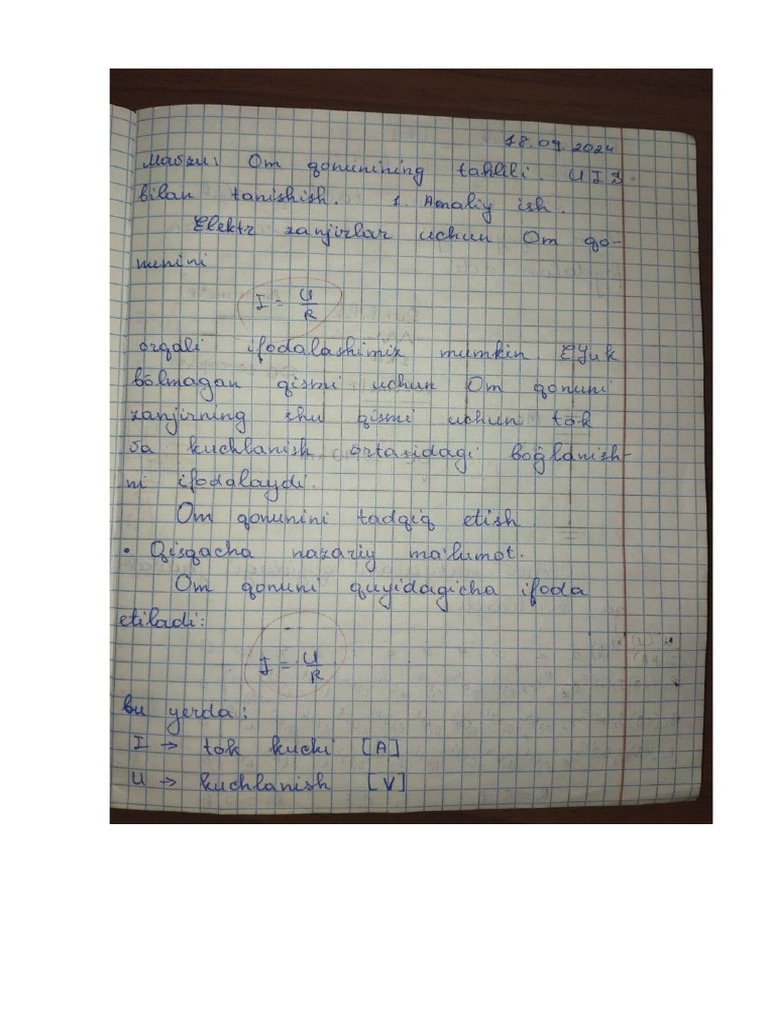 18.09.2024
Mavzu: Om qonunining tahlili. UIS
bilan tanishish. 1. Amaliy ish.
Elektr zanjirlar uchun Om qo-
nunini
I = U/R
orqali ifodalashimiz mumkin EYuk
bo'lmagan qismi uchun Om qonuni
zanjirning shu qismi uchun tok
va kuchlanish ortasidagi bog'lanish-
ni ifodalaydi.
Om qonunini tadqiq etish
• Qisqacha nazariy ma'lumot.
Om qonuni quyidagicha ifoda
etiladi:
I = U/R
bu yerda:
I → tok kuchi [A]
U → kuchlanish [V]